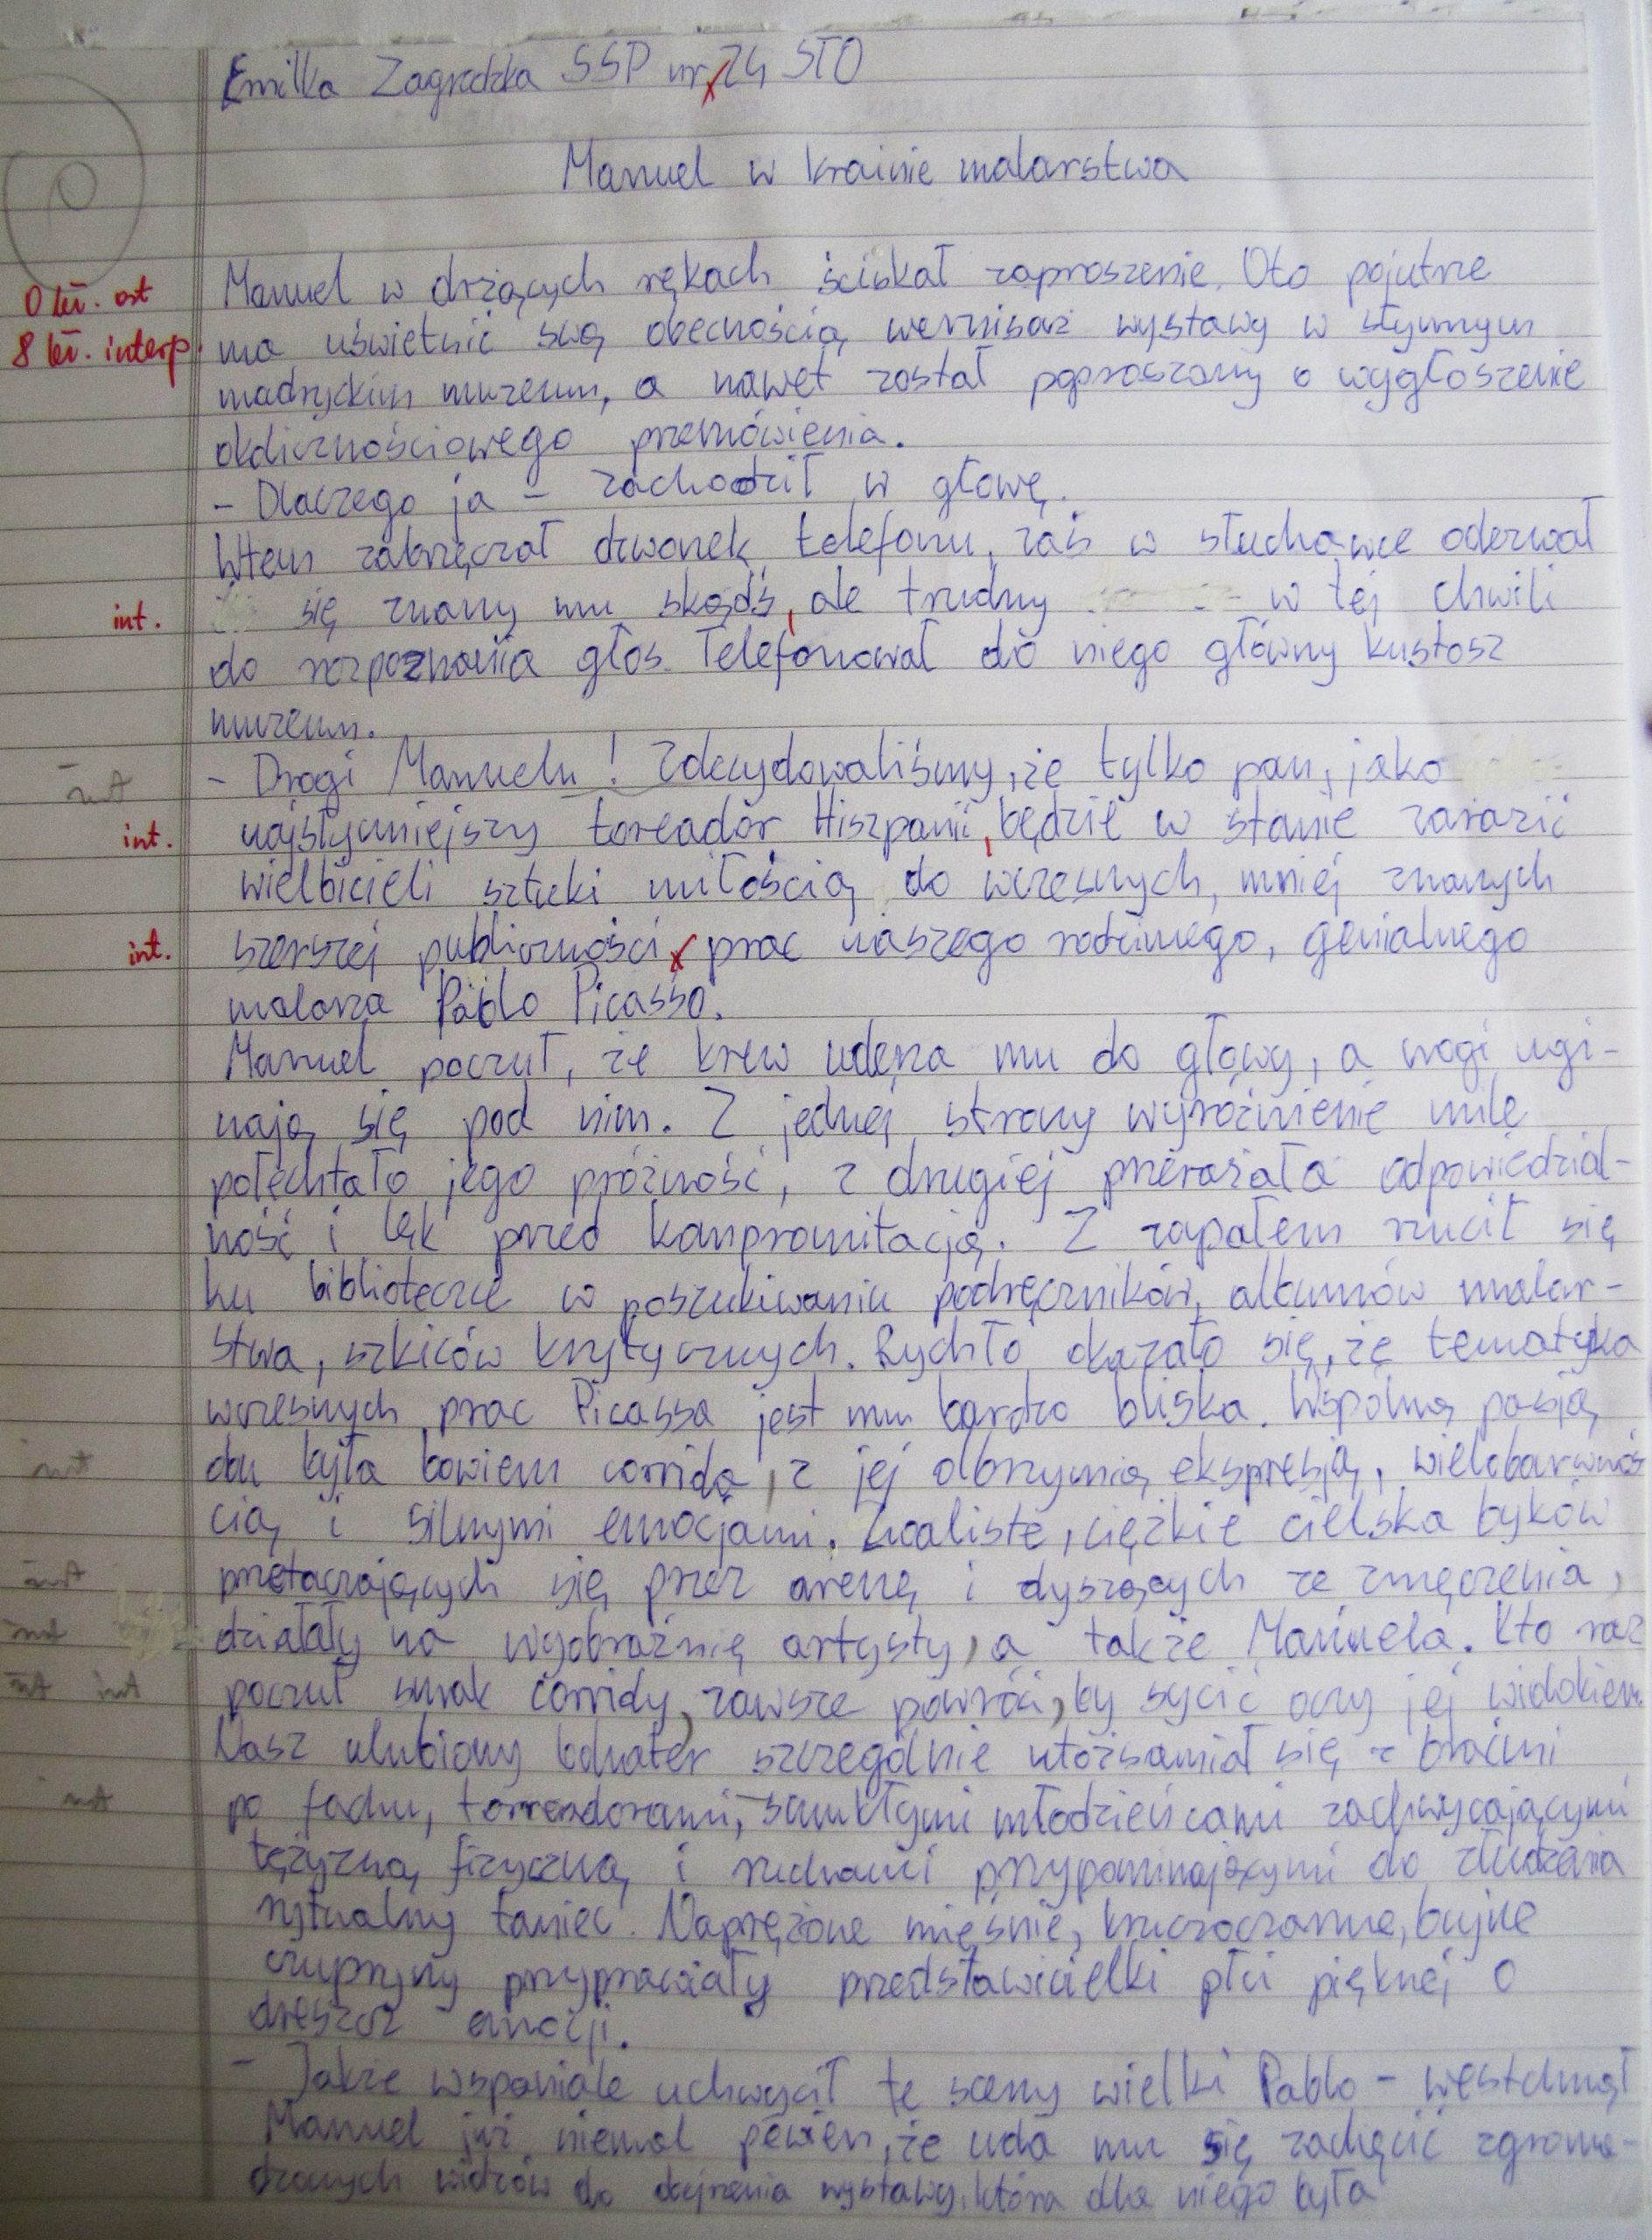 Emilka Zagrodzka SSP nr 24 STO
Manuel w krainie malarstwa
0 kl. ort
8 kl. interp.
Manuel w drżących rękach ściskał zaproszenie. Oto pojutrze
ma uświetnić swą obecnością wernisaż wystawy w słynnym
madryckim muzeum, a nawet został poproszony o wygłoszenie
okolicznościowego przemówienia.
- Dlaczego ja - zachodził w głowę.
Wtem zabrzęczał dzwonek telefonu, zaś w słuchawce oderwał
int. się znany mu skądś, ale trudny w tej chwili
do rozpoznania głos. Telefonował do niego główny kustosz
muzeum.
int - Drogi Manuelu! Zdecydowaliśmy, że tylko pan, jako
int. najsłynniejszy toreador Hiszpanii, będzie w stanie zarazić
wielbicieli sztuki miłością do wczesnych, mniej znanych
int. szerszej publiczności prac naszego rodzimego, genialnego
malarza Pablo Picasso.
Manuel poczuł, że krew uderza mu do głowy, a nogi ugi-
nają się pod nim. Z jednej strony wyróżnienie mile
połechtało jego próżność, z drugiej przerażała odpowiedzial-
ność i lęk przed kompromitacją. Z zapałem rzucił się
ku biblioteczce w poszukiwaniu podręczników, albumów malar-
stwa, szkiców krytycznych. Rychło okazało się, że tematyka
wczesnych prac Picassa jest mu bardzo bliska. Wspólną pasją
int obu była bowiem corrida, z jej olbrzymią ekspresją, wielobarwnoś
cią i silnymi emocjami. Zwaliste, ciężkie cielska byków
int przetaczających się przez arenę i dyszących ze zmęczenia,
int działały na wyobraźnię artysty, a także Manuela. Kto raz
int int poczuł smak corridy, zawsze powróci, by sycić oczy jej widokiem.
Nasz ulubiony bohater szczególnie utożsamiał się z braćmi
int po fachu, torreadorami, smukłymi młodzieńcami zachwycającymi
tężyzną fizyczną i ruchami przypominającymi do złudzenia
rytualny taniec. Naprężone mięśnie, kruczoczarne, bujne
czupryny przyprawiały przedstawicielki płci pięknej o
dreszcz emocji.
- Jakże wspaniale uchwycił te sceny wielki Pablo - westchnął
Manuel już niemal pewien, że uda mu się zachęcić zgroma-
dzonych widzów do obejrzenia wystawy, która dla niego była